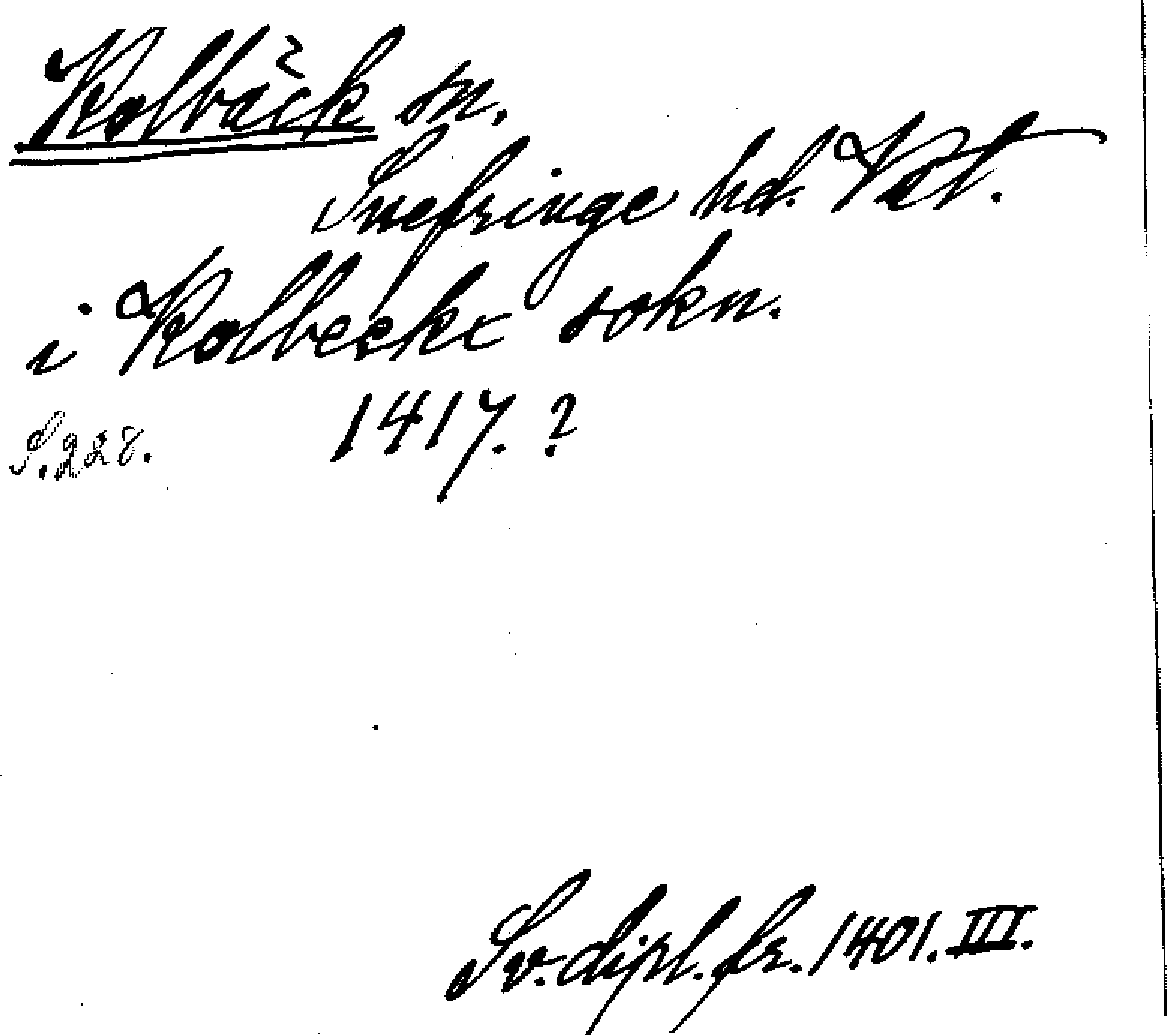 Kolbäck sn.
Snefringe hd. Vstl.
i Kolbecke sokn.
1417. ?
S. 228.
Sv. dipl. fr. 1401. III.